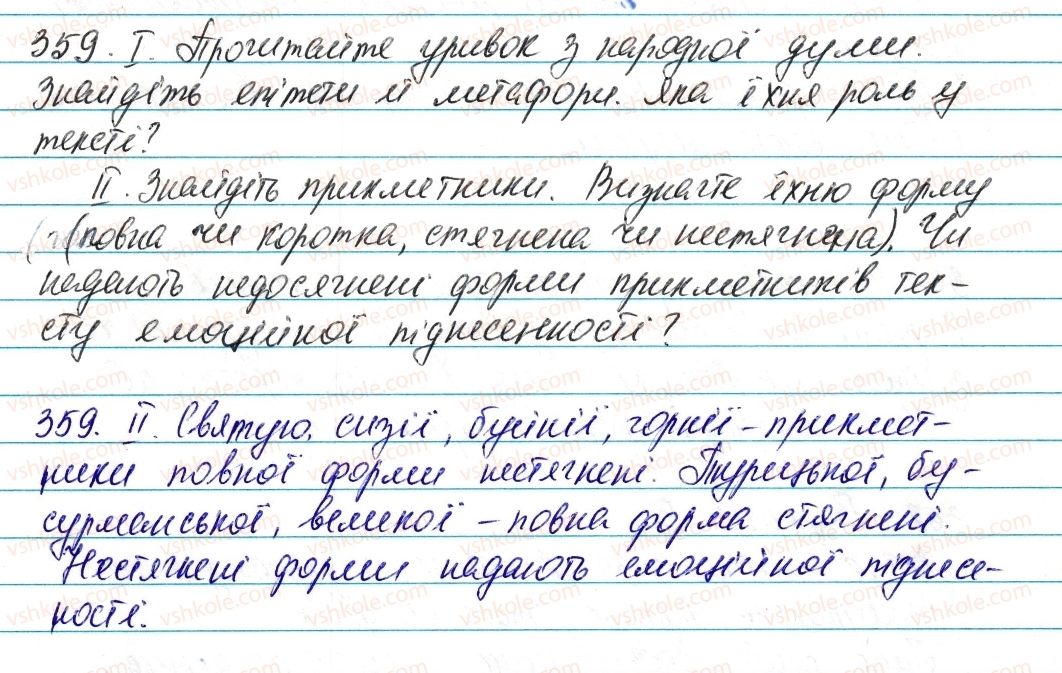 359. I. Прочитайте уривок з народної думи.
Знайдіть епітети й метафори. Яка їхня роль у
тексті?
II. Знайдіть прикметники. Визначте їхню форму
(повна чи коротка, стягнена чи нестягнена). Чи
надають недосягнені форми прикметників тек-
сту емоційної піднесенності?
359. II. Святую, сизії, буйнії, чорнії - прикмет-
ники повної форми нестягнені. Турицької, бу-
сурманської, великої - повна форма стягнені.
Нестягнені форми надають емоційної піднесе-
ності.